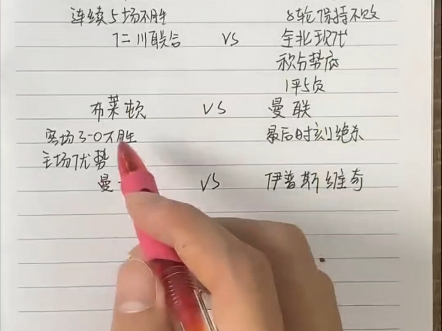 连续5场不胜 8轮保持不败
仁川联合 VS 全北现代
积分势底
1平5负
布莱顿 VS 曼联
客场3-0大胜 最后时刻绝杀
主场优势
曼 VS 伊普斯维奇